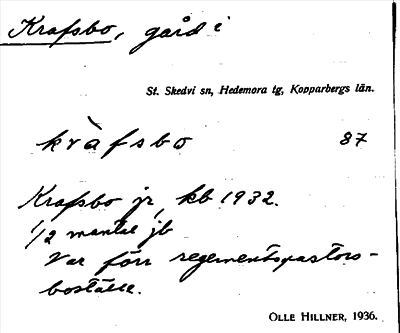 Krafsbo, gård i
St. Skedvi sn, Hedemora tg, Kopparbergs län.
kràfsbo 87
Krafsbo jr, kb 1932.
1/2 mantal jb
Var förr regementspastors-
boställe.
OLLE HILLNER, 1936.